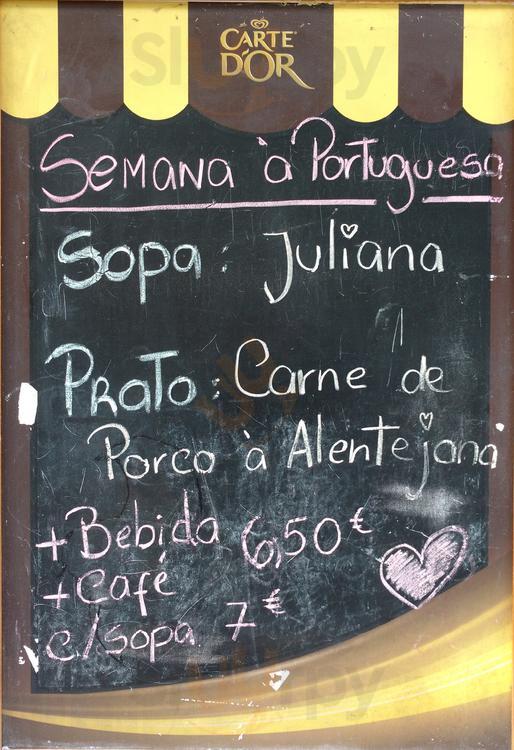 CARTE
D'OR
Semana à Portuguesa
Sopa: Juliana
Prato: Carne de
Porco à Alentejana
+Bebida 6,50€
+Café
c/sopa 7€